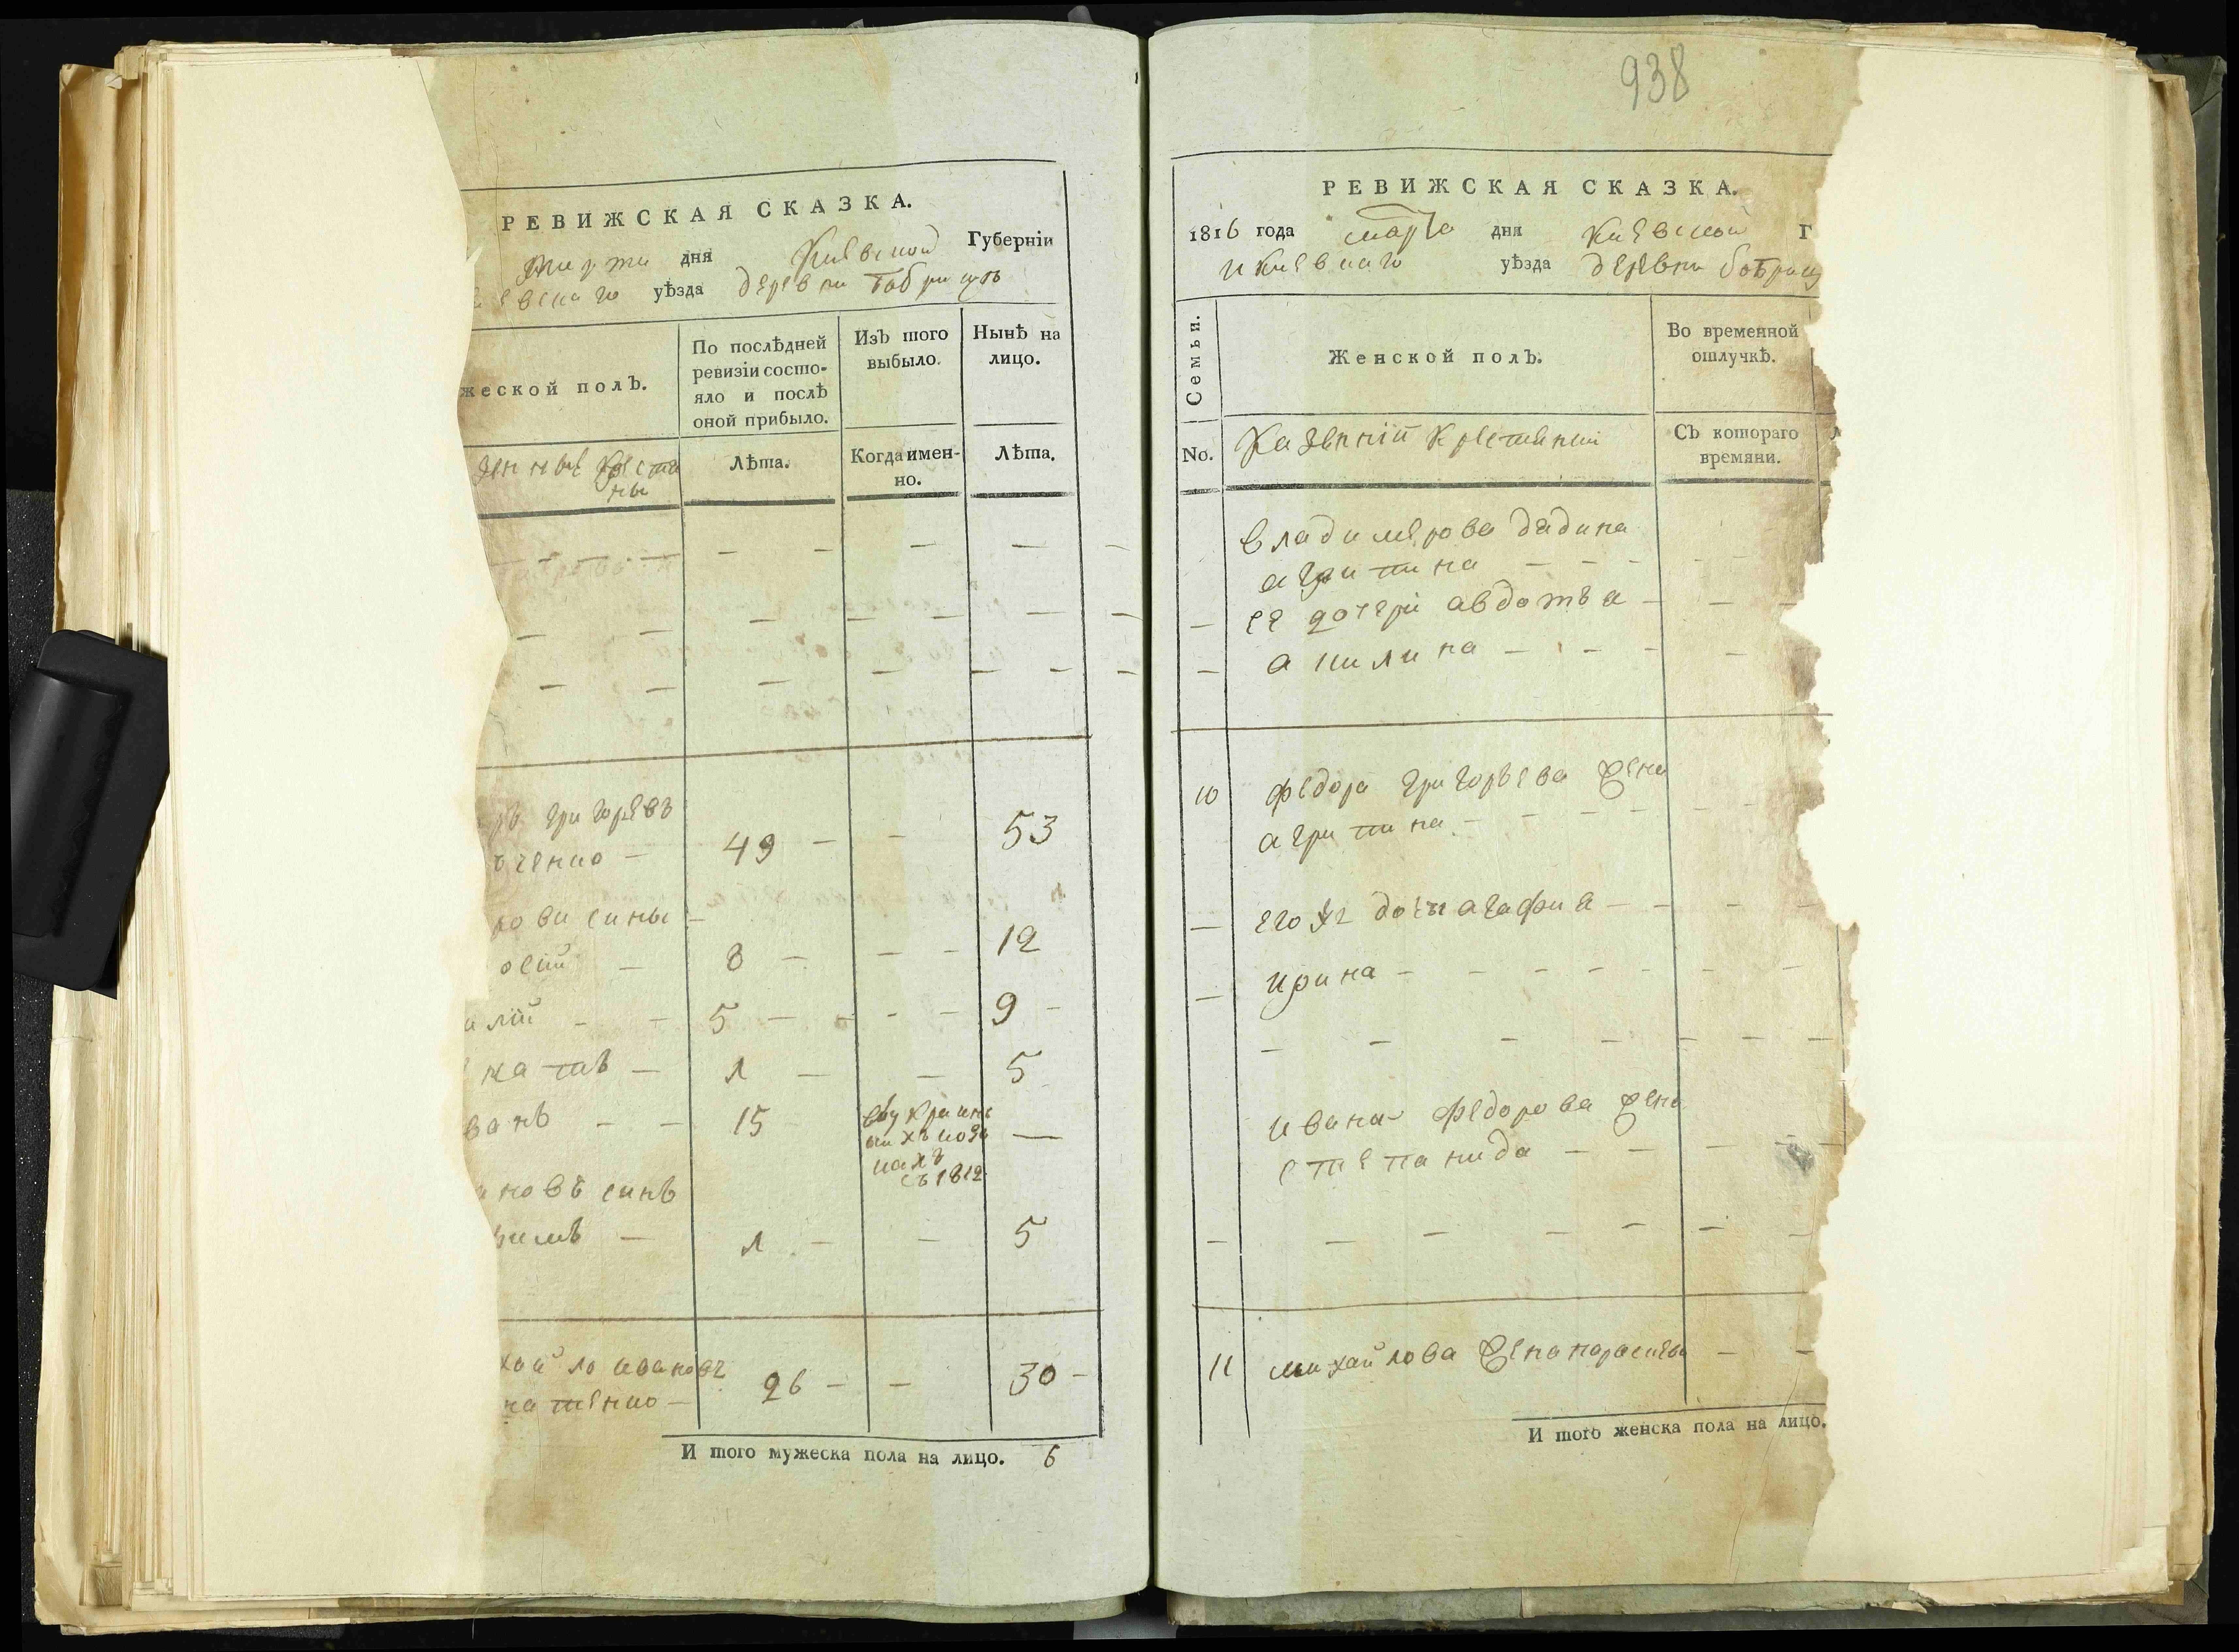 РЕВИЖСКАЯ СКАЗКА.
марта дня Киевской Губерніи
евскаго уѣзда деревни Бобрицѣ
жеской полЪ.
По послѣдней
ревизіи состо-
яло и послѣ
оной прибыло.
ИзЪ того
выбыло.
Нынѣ на
лицо.
зенные крестя
ны
Лѣта.
Когда имен-
но.
Лѣта.
— — — — — — — —
— — — — — — —
— — — — — — —
ръ григоревъ
ченко — 49 — — 53
рови сины —
осій — 8 — — — 12
илій — — 5 — — — — 9 —
натъ — 1 — — 5
ванъ — — 15 —
съ 1812
новъ синъ
имъ — 1 — — 5
хайло ивановъ
натенко — 26 — — 30 —
И того мужеска пола на лицо. 6
938
РЕВИЖСКАЯ СКАЗКА.
1816 года марта дня Киевской Г
и Киевкаго уѣзда деревни бобриц
Семьи.
Женской полЪ.
Во временной
отлучкѣ.
No.
Казенній крестянки
СЪ котораго
времяни.
владимерова дядина
агрипина — — — —
— ее дочери авдотья — — —
— акилина — — — —
10 федора григорьева жена
агрипина — — — — — —
— его же дочь агафия — — — —
— ирина — — — — — — —
— — — — — — —
ивана федорова жена
степанида — — — — —
— — — — — — —
11 михайлова жена парасκева — —
И того женска пола на лицо.